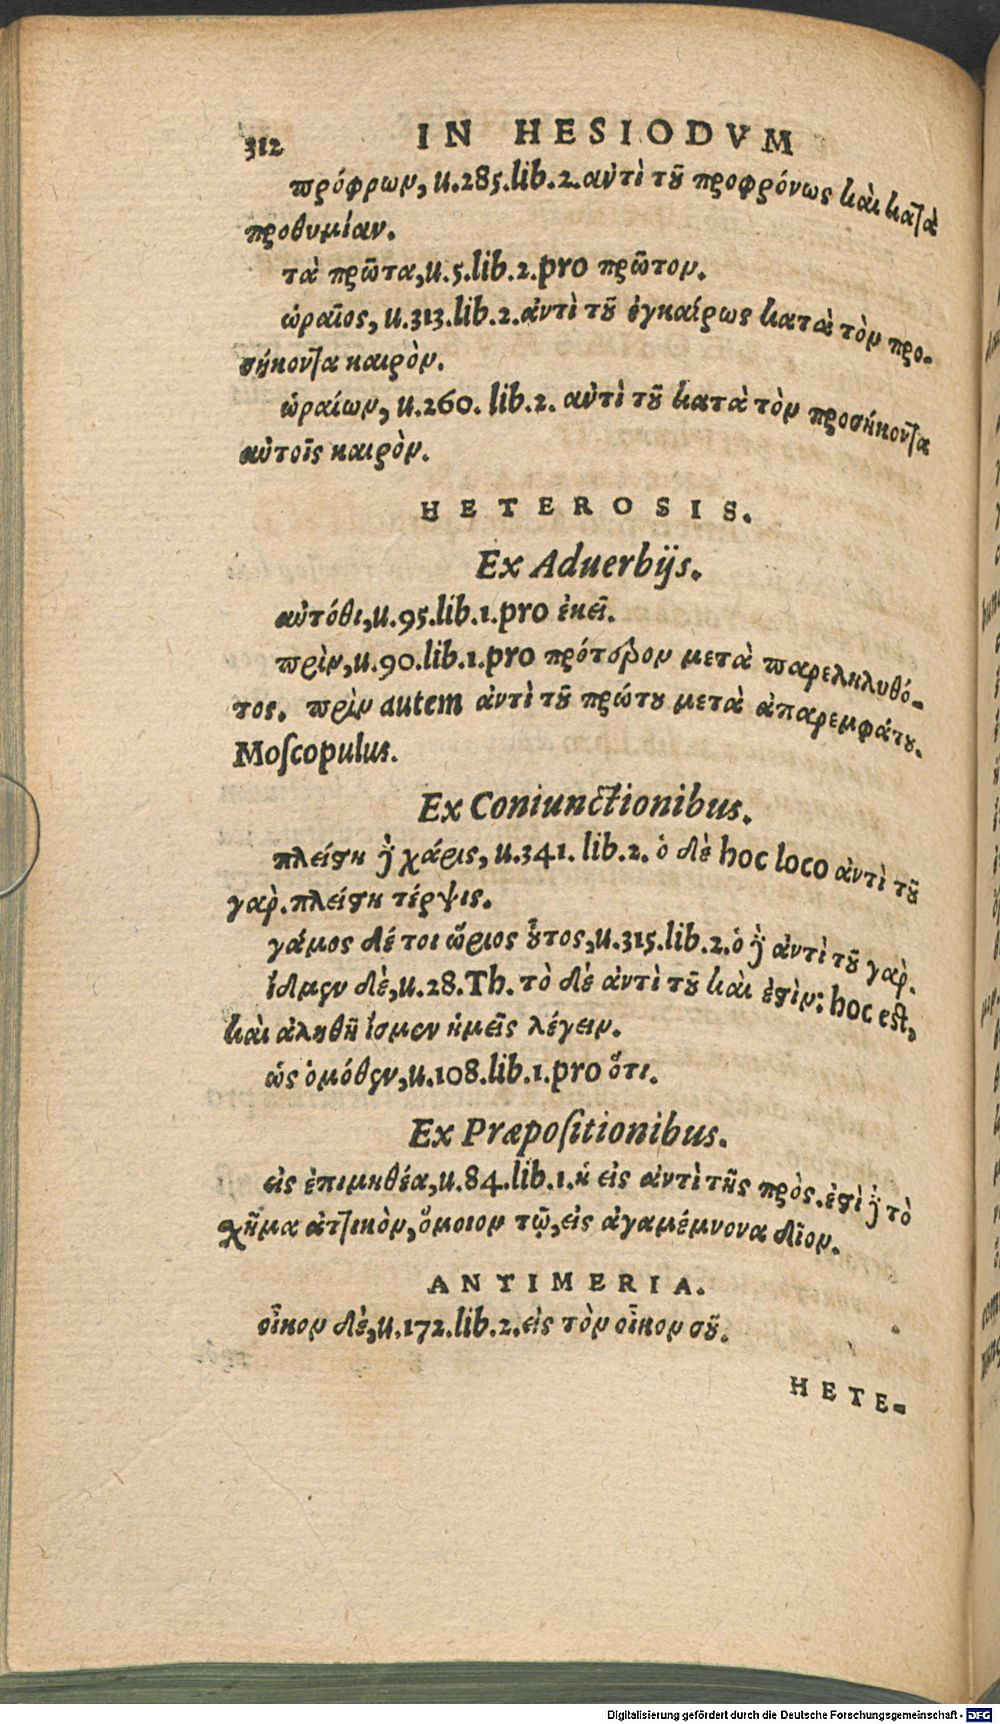 312 IN HESIODVM
πρόφρων, u.285.lib.2.ἀντὶ τοῦ προφρόνως καὶ κατὰ
προθυμίαν.
τὰ πρῶτα, u.5.lib.2.pro πρῶτον.
ὡραῖος, u.313.lib.2.ἀντὶ τοῦ ἐγκαίρως κατὰ τὸν προ-
σήκοντα καιρὸν.
ὡραίων, u.260. lib.2. ἀντὶ τοῦ κατὰ τὸν προσήκοντα
αὐτοῖς καιρὸν.
HETEROSIS.
Ex Aduerbijs.
αὐτόθι, u.95.lib.1.pro ἐκεῖ.
πρὶν, u.90.lib.1.pro πρότερον μετὰ παρεληλυθό-
τος. πρὶν autem ἀντὶ τοῦ πρώτου μετὰ ἀπαρεμφάτου.
Moſcopulus.
Ex Coniunctionibus.
πλείστη δὲ χάρις, u.341. lib.2. ὁ δὲ hoc loco ἀντὶ τοῦ
γαρ. πλείστη τέρψις.
γάμος δέ τοι ὥριος οὗτος, u.315.lib.2.ὁ δὲ ἀντὶ τοῦ γαρ.
ἴδμεν δὲ, u.28.Th. τὸ δὲ ἀντὶ τοῦ καὶ ἐστὶν: hoc eſt,
καὶ ἀληθῆ ἴσμεν ἡμεῖς λέγειν.
ὡς ὁμόθεν, u.108.lib.1.pro ὅτι.
Ex Præpoſitionibus.
εἰς ἐπιμηθέα, u.84.lib.1.ἡ εἰς ἀντὶ τῆς πρὸς. ἐστὶ δὲ τὸ
σχῆμα ἀττικὸν, ὅμοιον τῷ, εἰς ἀγαμέμνονα δῖον.
ANTIMERIA.
οἶκον δὲ, u.172.lib.2.εἰς τὸν οἶκον σοῦ.
HETE-
Digitalisierung gefördert durch die Deutsche Forschungsgemeinschaft - DFG